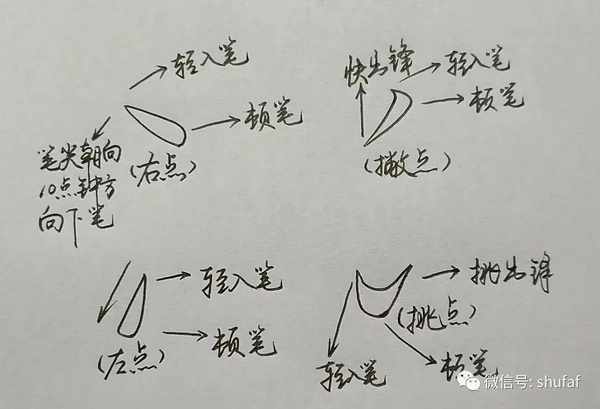 轻入笔
顿笔
笔尖朝向
10点钟方
向下笔
(右点)
快出锋
轻入笔
顿笔
(撇点)
轻入笔
顿笔
(左点)
挑出锋
(挑点)
轻入笔
顿笔
微信号: shufaf